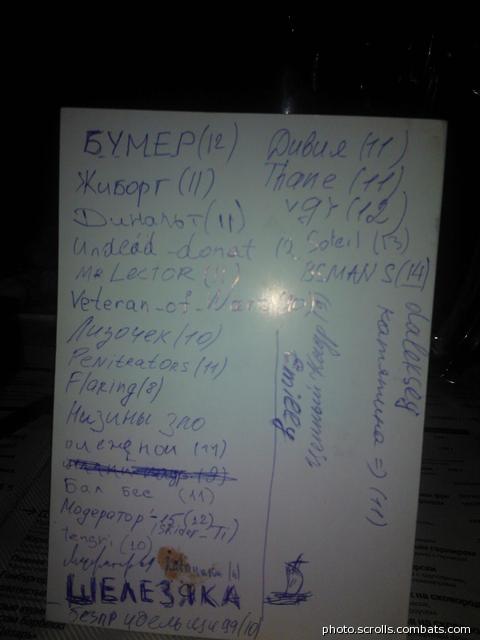 БУМЕР(12)
Живорг (11)
Динальт(11)
Undead_donat
Mr Lector
Veteran_of_Wars
Лизочек (10)
Penitrators (11)
Flaxing(8)
Низины зло
олежной (11)
Бал бес (11)
Модератор-15 (12)
(Skider_Ti)
tengri (10)
ШЕЛЕЗЯКА
Дивия (11)
Thane (11)
vgr (12)
Soleil (13)
BSMANS (14)
Ценный Кадр
daleksey
катятина =) (11)
photo.scrolls.combats.com